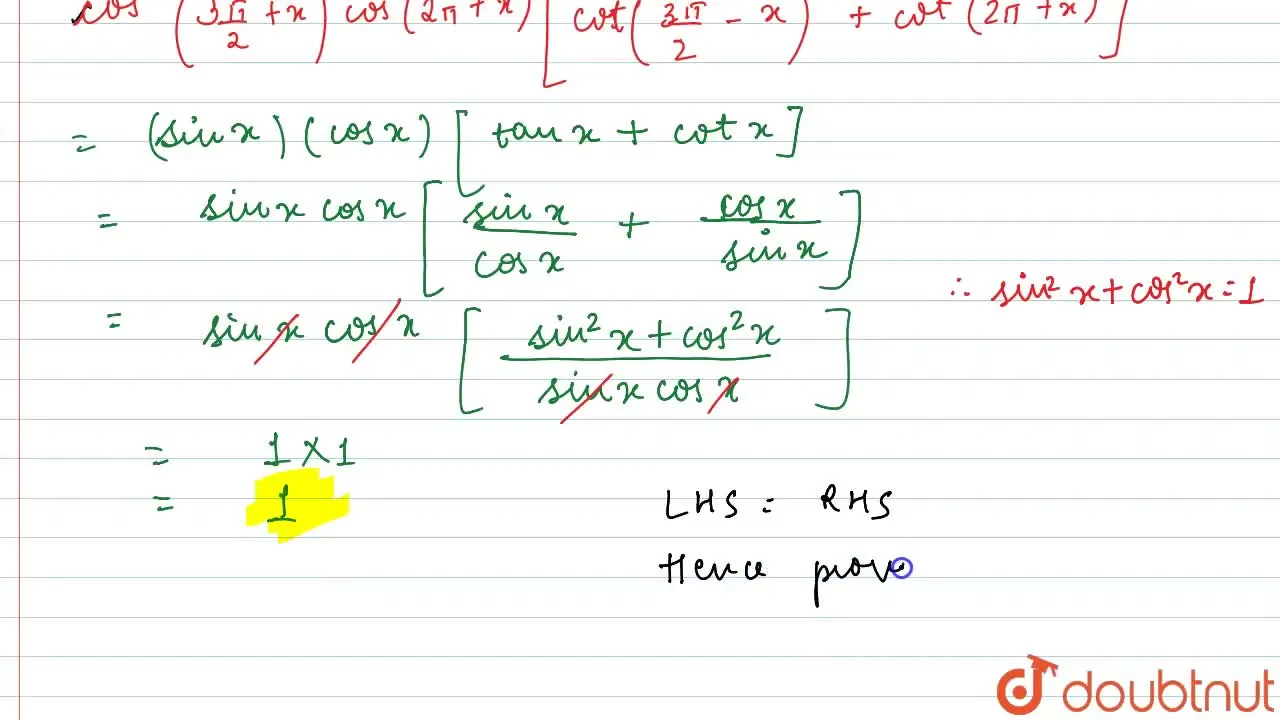 cos (3π/2 + x) cos (2π + x) [cot (3π/2 - x) + cot (2π + x)]
= (sin x) (cos x) [tan x + cot x]
= sin x cos x [sin x/cos x + cos x/sin x]
∴ sin² x + cos² x = 1
= sin x cos x [sin² x + cos² x/sin x cos x]
= 1 × 1
= 1
LHS = RHS
Hence prov
doubtnut